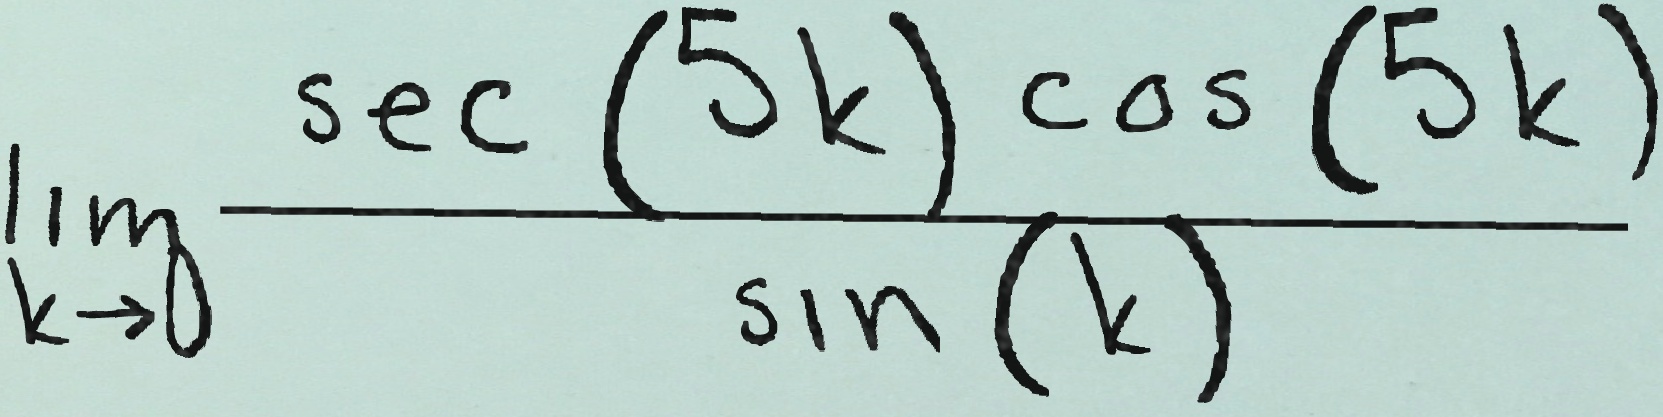 lim k→0 sec(5k) cos(5k) / sin(k)